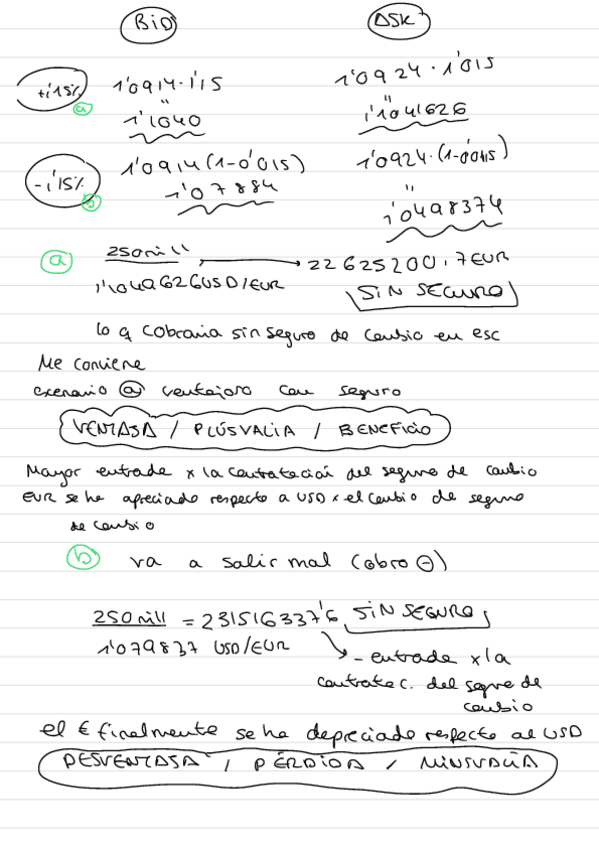 BID ASK
+1'15% 1'0914·1'15 1'0924·1'015
a " "
1'1040 1'1041626
-1'15% 1'0914(1-0'015) 1'0924·(1-0'0115)
b 1'07884 "
1'0498374
a 250mill → 22625200'7EUR
1'1049626USD/EUR SIN SEGURO
lo q cobraria sin seguro de cambio en esc
Me conviene
exenario a ventajoso con seguro
VENTAJA / PLUSVALIA / BENEFICIO
Mayor entrada x la contratación del seguro de cambio
EUR se ha apreciado respecto a USD x el cambio de seguro
de cambio
b va a salir mal (cobro ⊖)
250mill = 231516337'6 SIN SEGURO
1'079837 USD/EUR → - entrada x la
contratac. del segre de
cambio
el € finalmente se ha depreciado respecto al USD
DESVENTAJA / PÉRDIDA / MINUSVALÍA